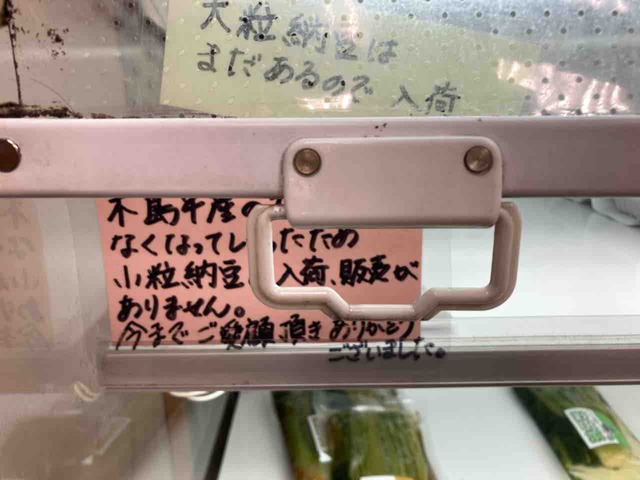 大粒納豆は
まだあるので 入荷
木島平産の
なくなってしまったため
小粒納豆 入荷、販売が
ありません。
今までご愛顧頂きありがとう
ございました。